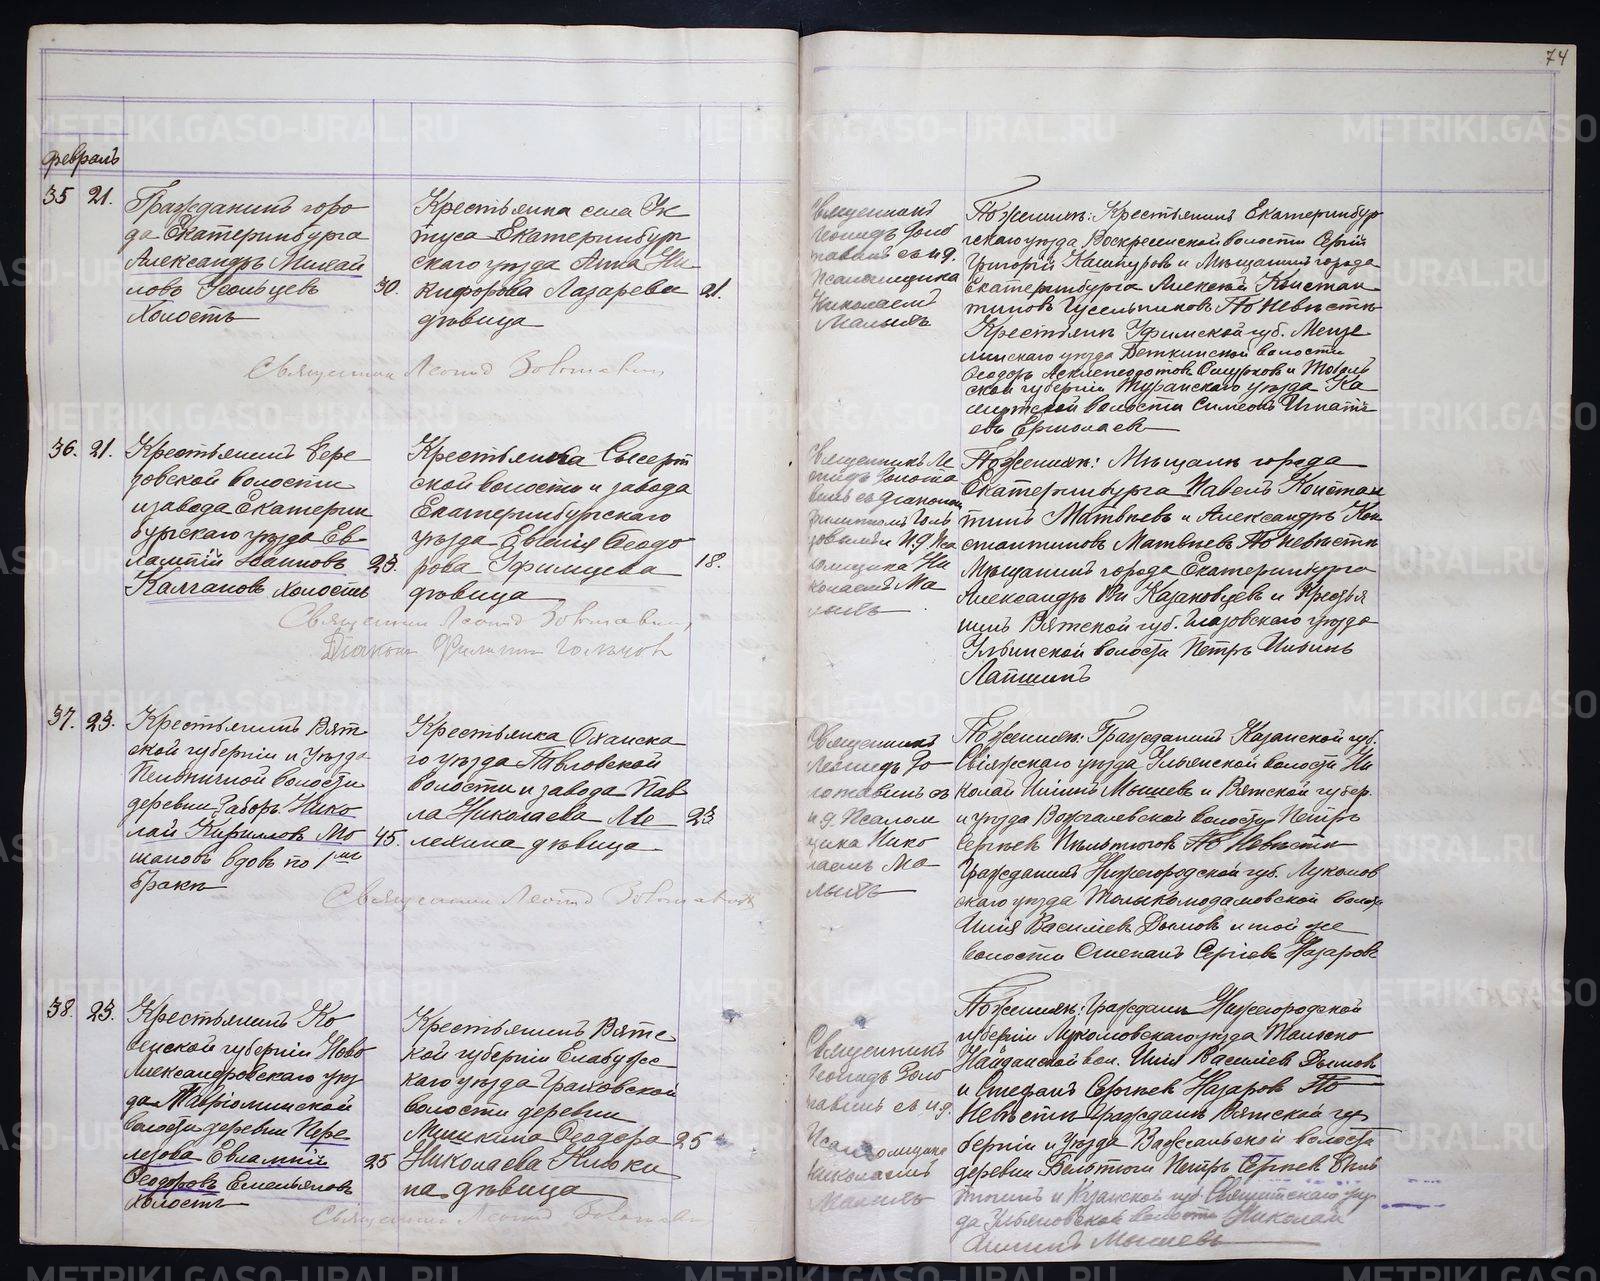 74
февраль
35 21.
Гражданинъ горо
да Екатеринбурга
Александръ Михай
ловъ Усольцевъ
Холостъ
30.
Крестьянка села Ук
туса Екатеринбург
скаго уѣзда Анна Ни
кифорова Лазарева
дѣвица
21.
Священникъ
Леонидъ Золо
тавинъ съ и.д.
Псаломщика
Николаемъ
Малыхъ
По женихѣ: Крестьянинъ Екатеринбур
гскаго уѣзда Воскресенской волости Сергій
Григорій Кашкуровъ и Мѣщанинъ города
Екатеринбурга Алексѣй Констан
тиновъ Гусельниковъ По Невѣстѣ
Крестьянъ Уфимской губ. Мензе
линскаго уѣзда волости
Ѳеодоръ и Тоболь
ской губерніи Туринскаго уѣзда Ка
волости Симеонъ Игнать
евъ Ермолаевъ
Священникъ Леонид Золотавин
36. 21.
Крестьянинъ Бере
зовской волости
и завода Екатерин
бургскаго уѣзда Ев
лампій Ивановъ
Калгановъ холостъ
23.
Крестьянка Сысерт
ской волости и завода
Екатеринбургскаго
уѣзда Евгенія Ѳеодо
рова Уфимцева
дѣвица
18.
Священникъ Ле
онидъ Золота
винъ съ Діакономъ
Филиппомъ Голь
и И.Д. Пса
ломщика Ни
колаемъ Ма
лыхъ
По Женихѣ: Мѣщане города
Екатеринбурга Павелъ Констан
тинъ Матвѣевъ и Александръ Кон
стантиновъ Матвѣевъ По Невѣстѣ
Мѣщанинъ города Екатеринбурга
Александръ Казановцевъ и Крестья
нинъ Вятской губ. Глазовскаго уѣзда
волости Петръ
Лапшинъ
Священник Леонид Золотавин
Діаконъ Филипп
37. 23.
Крестьянинъ Вят
ской губерніи и уѣзда
волости
деревни Заборъ Нико
лай Кирилловъ Мо
шановъ вдовъ по 1мъ
бракѣ
45.
Крестьянка Оханска
го уѣзда Павловской
волости и завода Пав
ла Николаева Ме
лехина дѣвица
23
Священникъ
Леонидъ Зо
лотавинъ съ
и.д. Псалом
щика Нико
лаемъ Ма
лыхъ
По женихѣ: Гражданинъ Казанской губ.
Свіяжскаго уѣзда Ульянской волости Ни
колай Ильинъ Мышевъ и Вятской губер.
и уѣзда волости Петръ
Сергѣевъ По Невѣстѣ
Гражданинъ Нижегородской губ. Лукояов
скаго уѣзда волости
Илія Василіевъ Дымовъ и той же
волости Степанъ Сергіевъ Назаровъ
Священник Леонид Золотавин
38. 23.
Крестьянинъ Ко
венской губерніи Ново
Александровскаго уѣз
да
волости деревни Пере
лезова Евлампій
Ѳеодоровъ Емельяновъ
Холостъ
25
Крестьянинъ Вятс
кой губерніи Елабужс
каго уѣзда Граховской
волости деревни
Мишкина Ѳеодора
Николаева Никки
на дѣвица
25
Священникъ
Леонидъ Золо
тавинъ съ и.д.
Псаломщика
Николаемъ
Малыхъ
По женихѣ: Граждане Нижегородской
губерніи Лукояновскаго уѣзда
вол. Илія Василіевъ Дымовъ
и Стефанъ Сергѣевъ Назаров По
Невѣстѣ Гражданъ Вятской гу
берніи и уѣзда волости
деревни Петръ Сергѣев
и Казанской губ. уѣз
да Ульяновской волости Николай
Ильинъ Мышевъ
Священник Леонид Золотавин